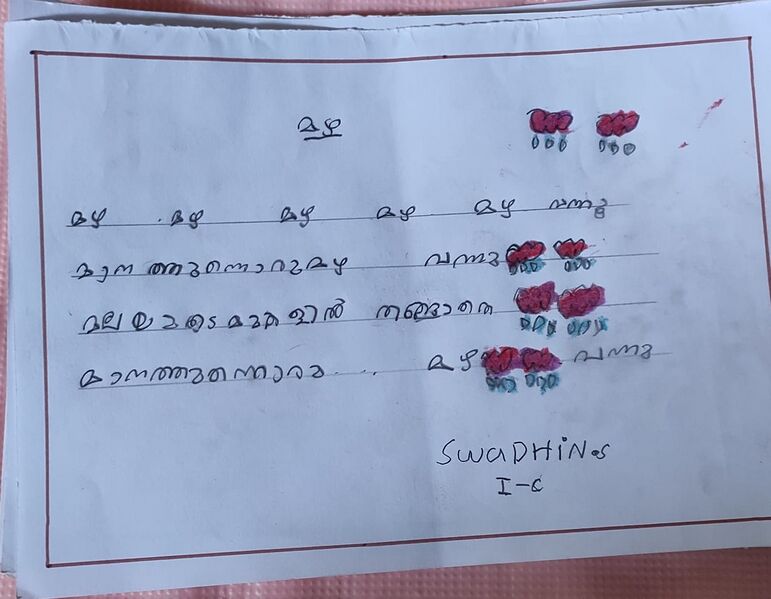 മഴ
മഴ മഴ മഴ മഴ മഴ വന്നു
മാനത്തുന്നൊരുമഴ വന്നു
മലയുടെമുകളിൽ തങ്ങാതെ
മാനത്തുന്നൊരു.... മഴ വന്നു
SWaDHiN.s
I-c